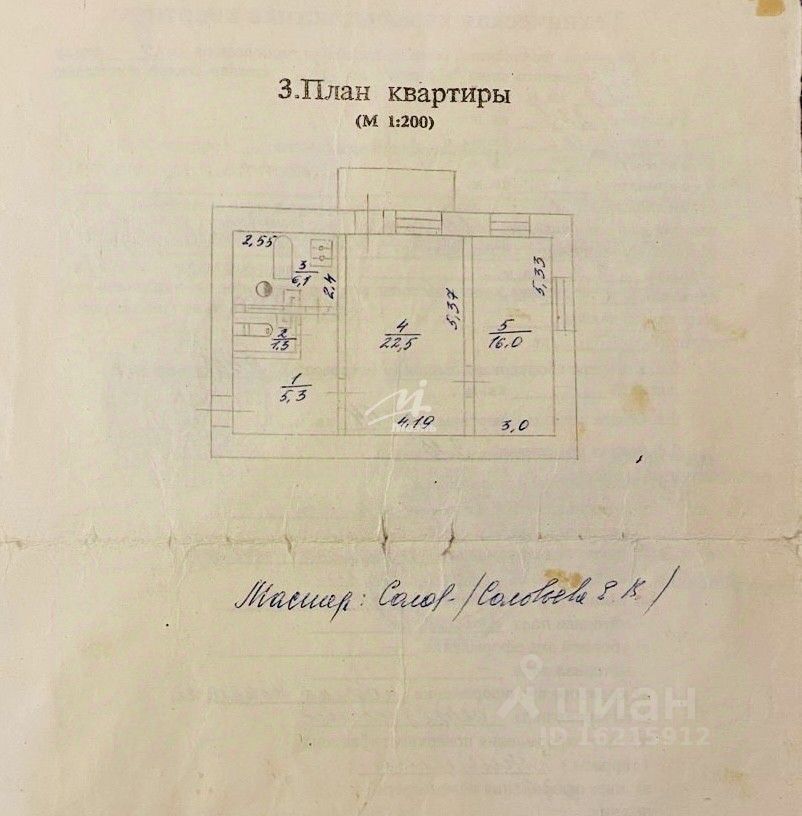 3.План квартиры
(М 1:200)
2,55
3
6,1
2,4
2
1,5
1
5,3
4
22,5
5,37
4,19
5
16,0
5,33
3,0
Мастер: Солов- /Соловьева Е.В./
циан
ID 16215912